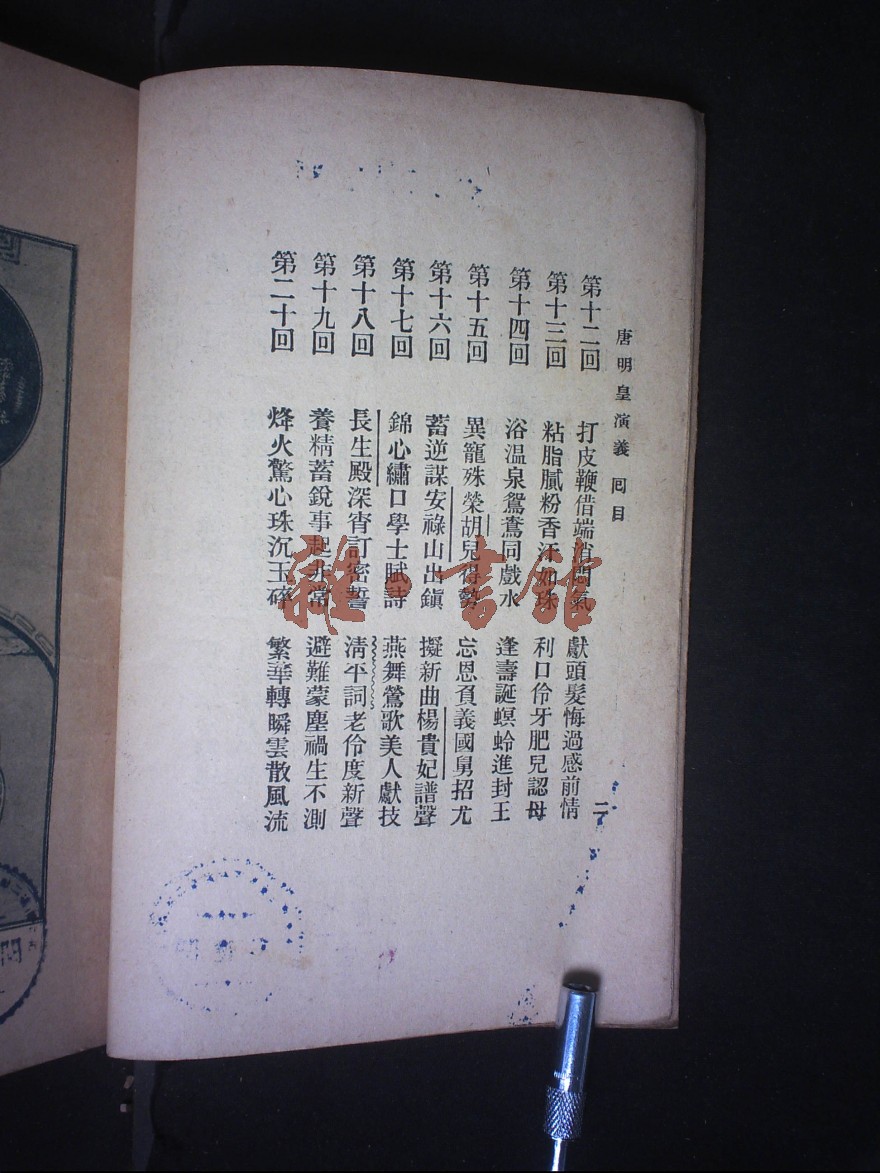 唐明皇演義 回目
二
第十二回 打皮鞭借端消悶氣 獻頭髮悔過感前情
第十三回 粘脂膩粉香汗如珠 利口伶牙肥兒認母
第十四回 浴溫泉鴛鴦同戲水 逢壽誕螟蛉進封王
第十五回 異寵殊榮胡兒得勢 忘恩負義國舅招尤
第十六回 蓄逆謀安祿山出鎮 擬新曲楊貴妃譜聲
第十七回 錦心繡口學士賦詩 燕舞鶯歌美人獻技
第十八回 長生殿深宵訂密誓 清平詞老伶度新聲
第十九回 養精蓄銳事起非常 避難蒙塵禍生不測
第二十回 烽火驚心珠沉玉碎 繁華轉瞬雲散風流
雜·書館